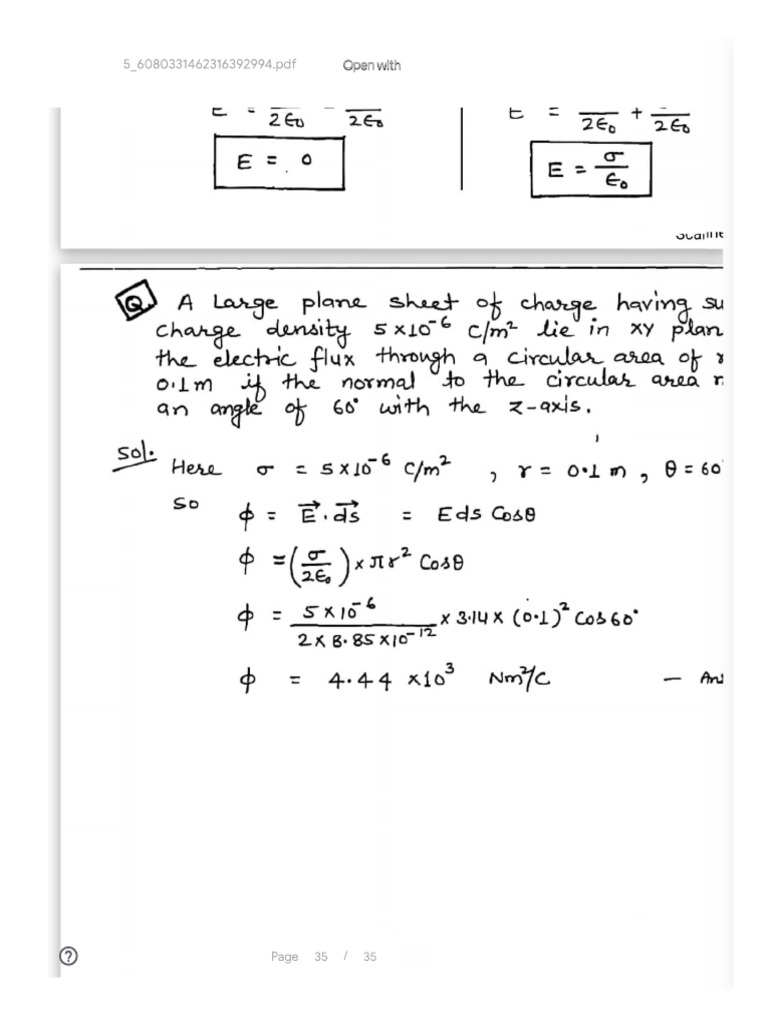 5_6080331462316392994.pdf Open with
2ε₀ 2ε₀ E = + 2ε₀ 2ε₀
E = 0 E = σ/ε₀
Q. A Large plane sheet of charge having su
charge density 5×10⁻⁶ C/m² lie in xy plan
the electric flux through a circular area of r
0.1m if the normal to the circular area m
an angle of 60° with the z-axis.
Sol. Here σ = 5×10⁻⁶ C/m² , r = 0.1 m , θ = 60
So ϕ = E⃗.ds⃗ = Eds Cosθ
ϕ = (σ/2ε₀) × πr² Cosθ
ϕ = 5×10⁻⁶/2×8.85×10⁻¹² × 3.14 × (0.1)² Cos60°
ϕ = 4.44 ×10³ Nm²/C — Ans
Page 35 / 35